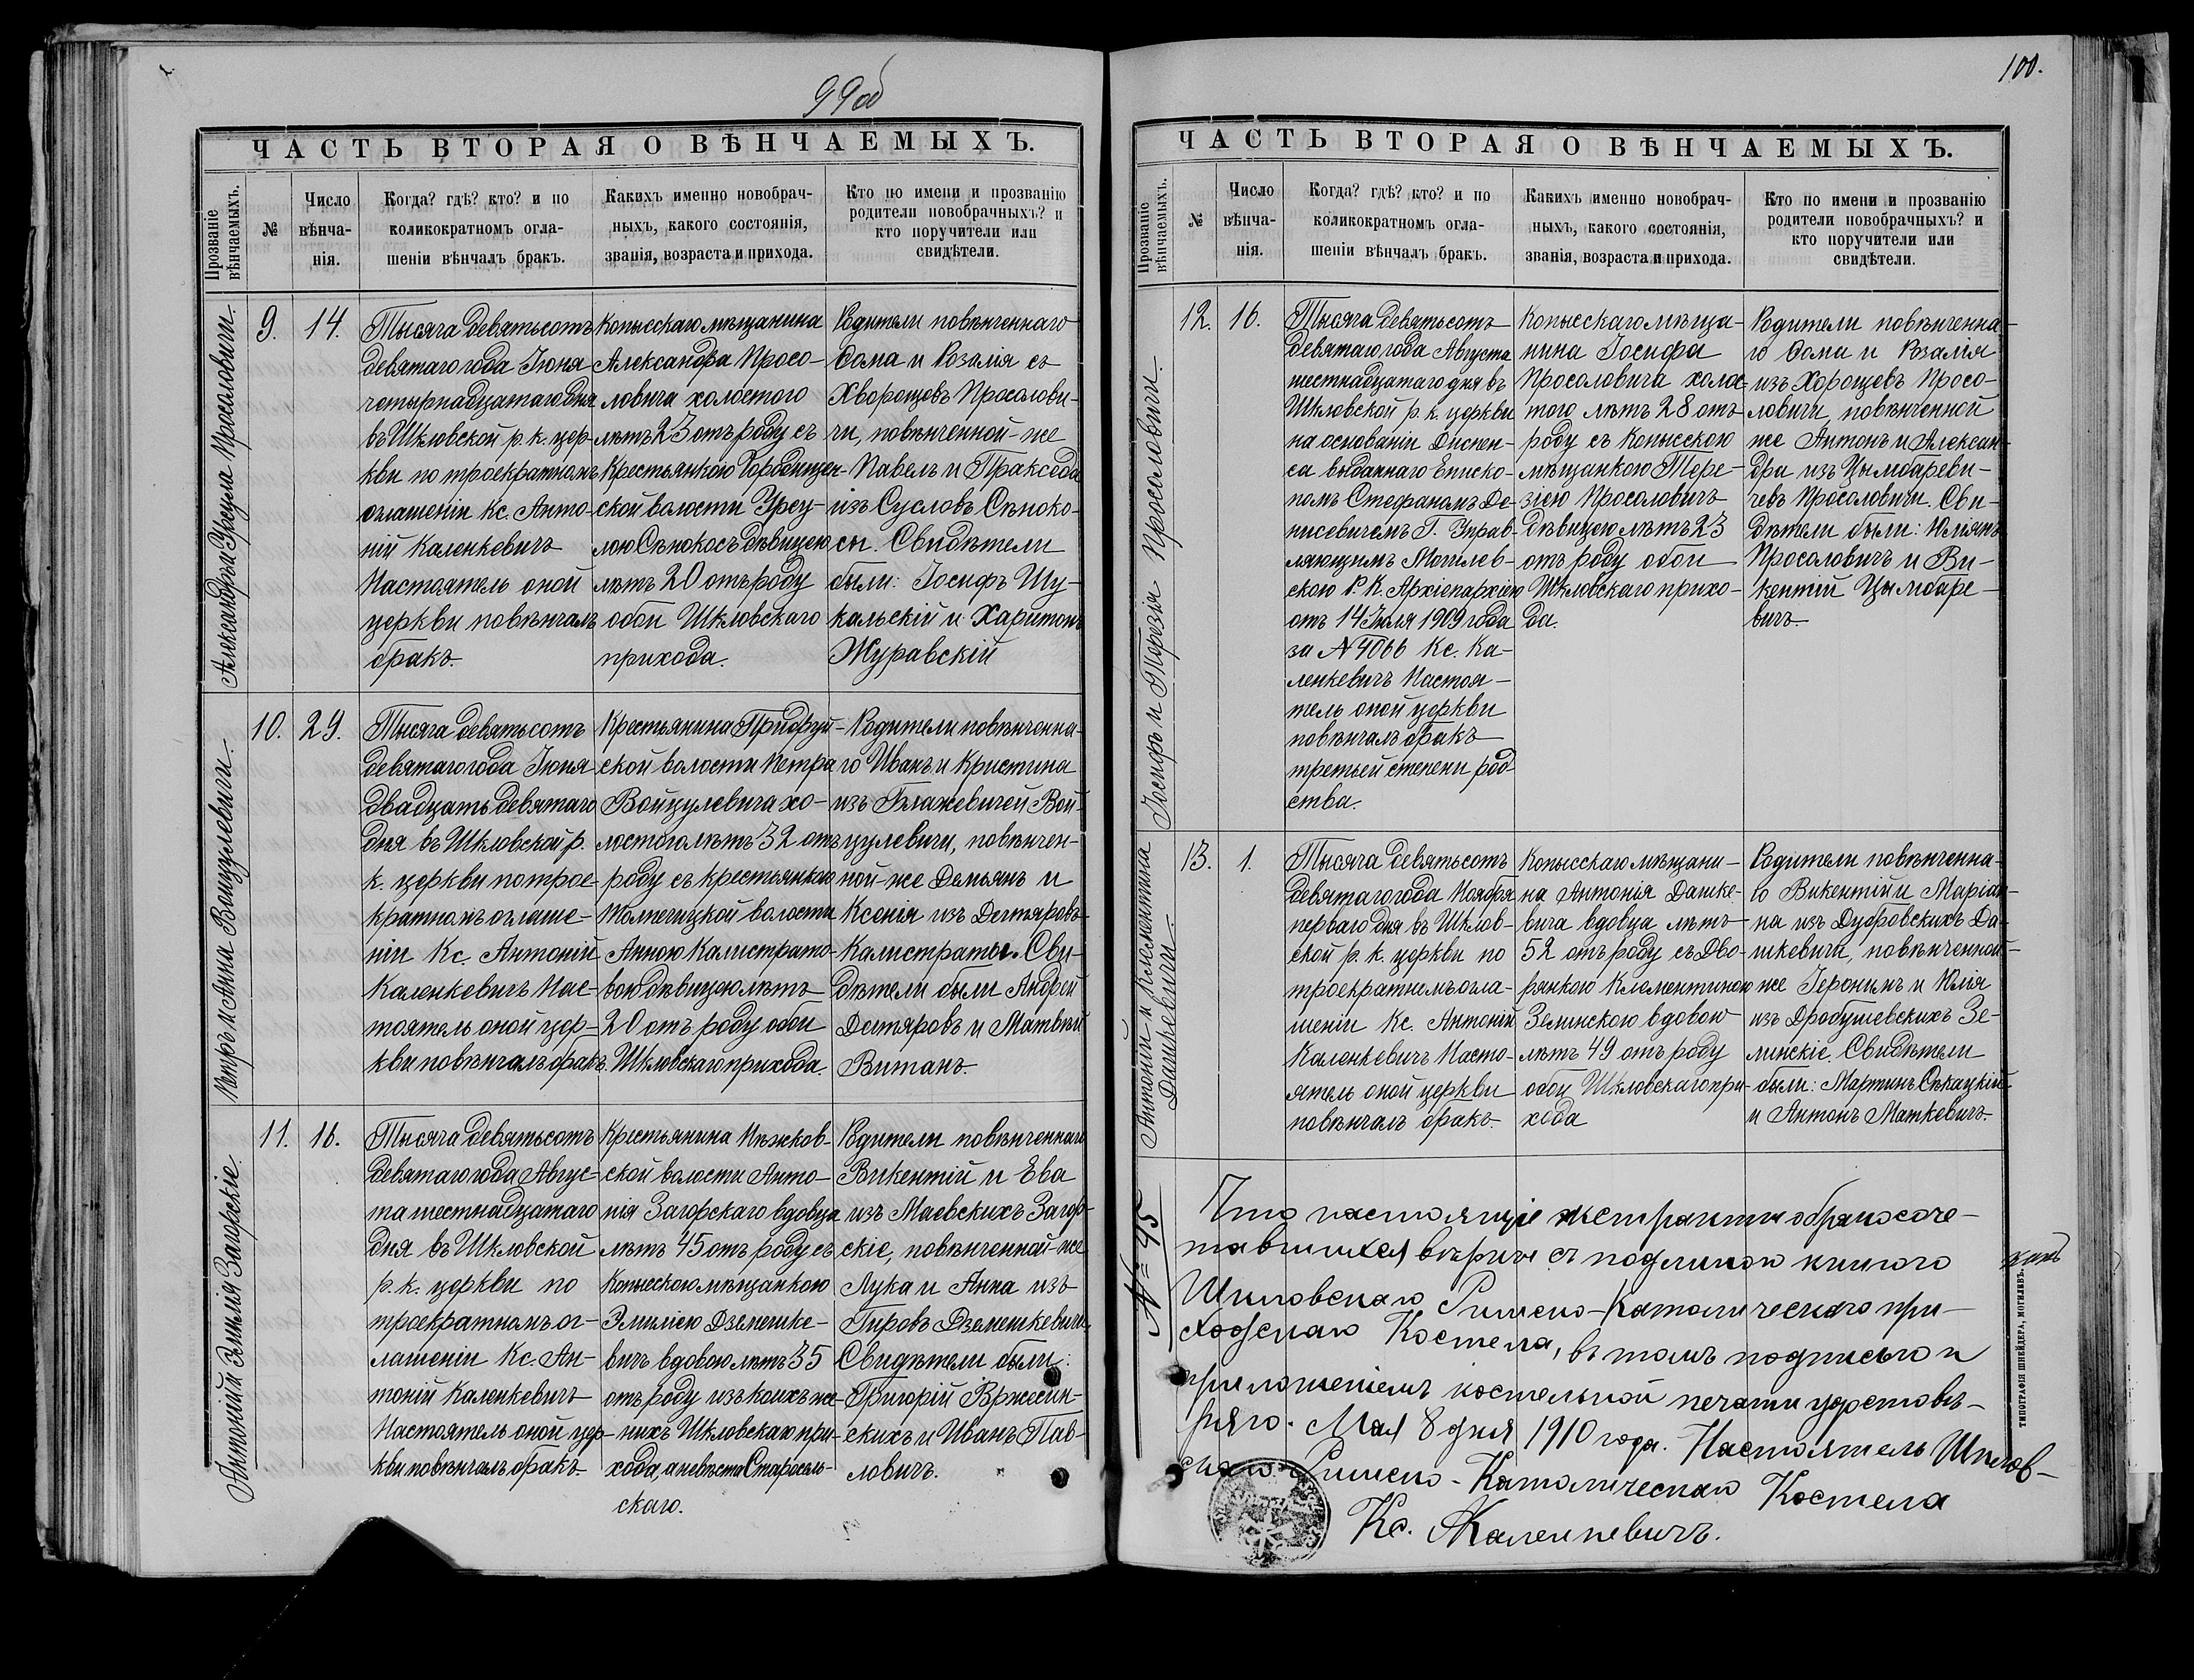 99об
ЧАСТЬ ВТОРАЯ О ВѢНЧАЕМЫХЪ.
Прозваніе
вѣнчаемыхъ.
№
Число
вѣнча-
нія.
Когда? гдѣ? кто? и по
коликократномъ огла-
шеніи вѣнчалъ бракъ.
Какихъ именно новобрач-
ныхъ, какого состоянія,
званія, возраста и прихода.
Кто по имени и прозванію
родители новобрачныхъ? и
кто поручители или
свидѣтели.
Александръ и Урсула Просоловичи.
9.
14.
Тысяча девятьсотъ
девятаго года Іюня
четырнадцатаго дня
въ Шкловской р. к. цер-
кви по троекратномъ
оглашеніи Кс. Анто-
ній Каленкевичъ
Настоятель оной
церкви повѣнчалъ
бракъ.
Копысскаго мѣщанина
Александра Просо-
ловича холостого
лѣтъ 23 отъ роду съ
Крестьянкою Городищен-
ской волости Урсу-
лою Сѣнокосъ дѣвицею
лѣтъ 20 отъ роду
обои Шкловскаго
прихода.
Родители повѣнченнаго
Ѳома и Розалія съ
Хворощовъ Просолови-
чи, повѣнченной-же
Павелъ и Пракседа
изъ Сусловъ Сѣноко-
сы. Свидѣтели
были: Іосифъ Шу-
кальскій и Харитонъ
Журавскій
Петръ и Анна Войцулевичи.
10.
29.
Тысяча девятьсотъ
девятаго года Іюня
двадцать девятаго
дня въ Шкловской р.
к. церкви по трое-
кратномъ оглаше-
ніи Кс. Антоній
Каленкевичъ Нас-
тоятель оной цер-
кви повѣнчалъ бракъ.
Крестьянина Придруй-
ской волости Петра
Войцулевича хо-
лостого лѣтъ 32 отъ
роду съ крестьянкою
Толпечицкой волости
Анною Калистрато-
вою дѣвицею лѣтъ
20 отъ роду обои
Шкловскаго прихода.
Родители повѣнченна-
го Иванъ и Кристина
изъ Блажевичей Вой-
цулевичи, повѣнчен-
ной-же Демьянъ и
Ксенія изъ Дегтяровъ
Калистраты. Сви-
дѣтели были Андрей
Дегтяровъ и Матвѣй
Витанъ.
Антоній и Эмилія Загорскіе.
11.
16.
Тысяча девятьсотъ
девятаго года Авгус-
та шестнадцатаго
дня въ Шкловской
р. к. церкви по
троекратномъ ог-
лашеніи Кс. Ан-
тоній Каленкевичъ
Настоятель оной цер-
кви повѣнчалъ бракъ.
Крестьянина Межков-
ской волости Анто-
нія Загорскаго вдовца
лѣтъ 45 отъ роду съ
Копысскою мѣщанкою
Эмиліею Дземешке-
вичъ вдовою лѣтъ 35
отъ роду изъ коихъ же-
нихъ Шкловскаго при-
хода, а невѣста Старосель-
скаго.
Родители повѣнченнаго
Викентій и Ева
изъ Маевскихъ Загор-
скіе, повѣнченной-же
Лука и Анна изъ
Гировъ Дземешкевичи.
Свидѣтели были:
Григорій Вржесин-
скихъ и Иванъ Пав-
ловичъ.
100.
ЧАСТЬ ВТОРАЯ О ВѢНЧАЕМЫХЪ.
Прозваніе
вѣнчаемыхъ.
№
Число
вѣнча-
нія.
Когда? гдѣ? кто? и по
коликократномъ огла-
шеніи вѣнчалъ бракъ.
Какихъ именно новобрач-
ныхъ, какого состоянія,
званія, возраста и прихода.
Кто по имени и прозванію
родители новобрачныхъ? и
кто поручители или
свидѣтели.
Іосифъ и Терезія Просоловичи.
12.
16.
Тысяча девятьсотъ
девятаго года Августа
шестнадцатаго дня въ
Шкловской р. к. церкви
на основаніи Диспен-
са выданнаго Еписко-
помъ Стефаномъ Де-
нисевичемъ Г. Управ-
ляющимъ Могилев-
скою Р. К. Архіепархіею
отъ 14 Іюля 1909 года
за № 4066 Кс. Ка-
ленкевичъ Настоя-
тель оной церкви
повѣнчалъ бракъ
третьей степени род-
ства.
Копысскаго мѣща-
нина Іосифа
Просоловича холос-
того лѣтъ 28 отъ
роду съ Копысскою
мѣщанкою Тере-
зіею Просоловичъ
дѣвицею лѣтъ 23
отъ роду обои
Шкловскаго прихо-
да.
Родители повѣнченна-
го Ѳома и Розалія
изъ Хорощевъ Просо-
ловичи, повѣнченной
же Антонъ и Алексан-
дра изъ Цымбареви-
чевъ Просоловичи. Сви-
дѣтели были: Юліянъ
Просоловичъ и Ви-
кентій Цымбаре-
вичъ.
Антоній и Клементина
Дашкевичи.
13.
1.
Тысяча девятьсотъ
девятаго года Ноября
перваго дня въ Шклов-
ской р. к. церкви по
троекратнемъ огла-
шеніи Кс. Антоній
Каленкевичъ Насто-
ятель оной церкви
повѣнчалъ бракъ.
Копысскаго мѣщани-
на Антонія Дашке-
вича вдовца лѣтъ
52 отъ роду съ Дво-
рянкою Клементиною
Зелинскою вдовою
лѣтъ 49 отъ роду
обои Шкловскаго при-
хода
Родители повѣнченна-
го Викентій и Маріан-
на изъ Дубровскихъ Да-
шкевичи, повѣнченной-
же Іеронимъ и Юлія
изъ Дробушевскихъ Зе-
линскіе. Свидѣтели
были: Мартинъ Сѣкацкій
и Антонъ Маткевичъ.
№ 45
Что настоящіе экстракты о бракосоче-
тавшихся вѣрны съ подлинною книгою
Шкловскаго Римско-Католическаго при-
ходскаго Костела, въ томъ подписью и
приложеніемъ костельной печати удостовѣ-
ряю. Мая 8 дня 1910 года. Настоятель Шклов-
скаго Римско-Католическаго Костела
Кс. АКаленкевичъ.
ТИПОГРАФІЯ ШНЕЙДЕРА, МОГИЛЕВЪ.